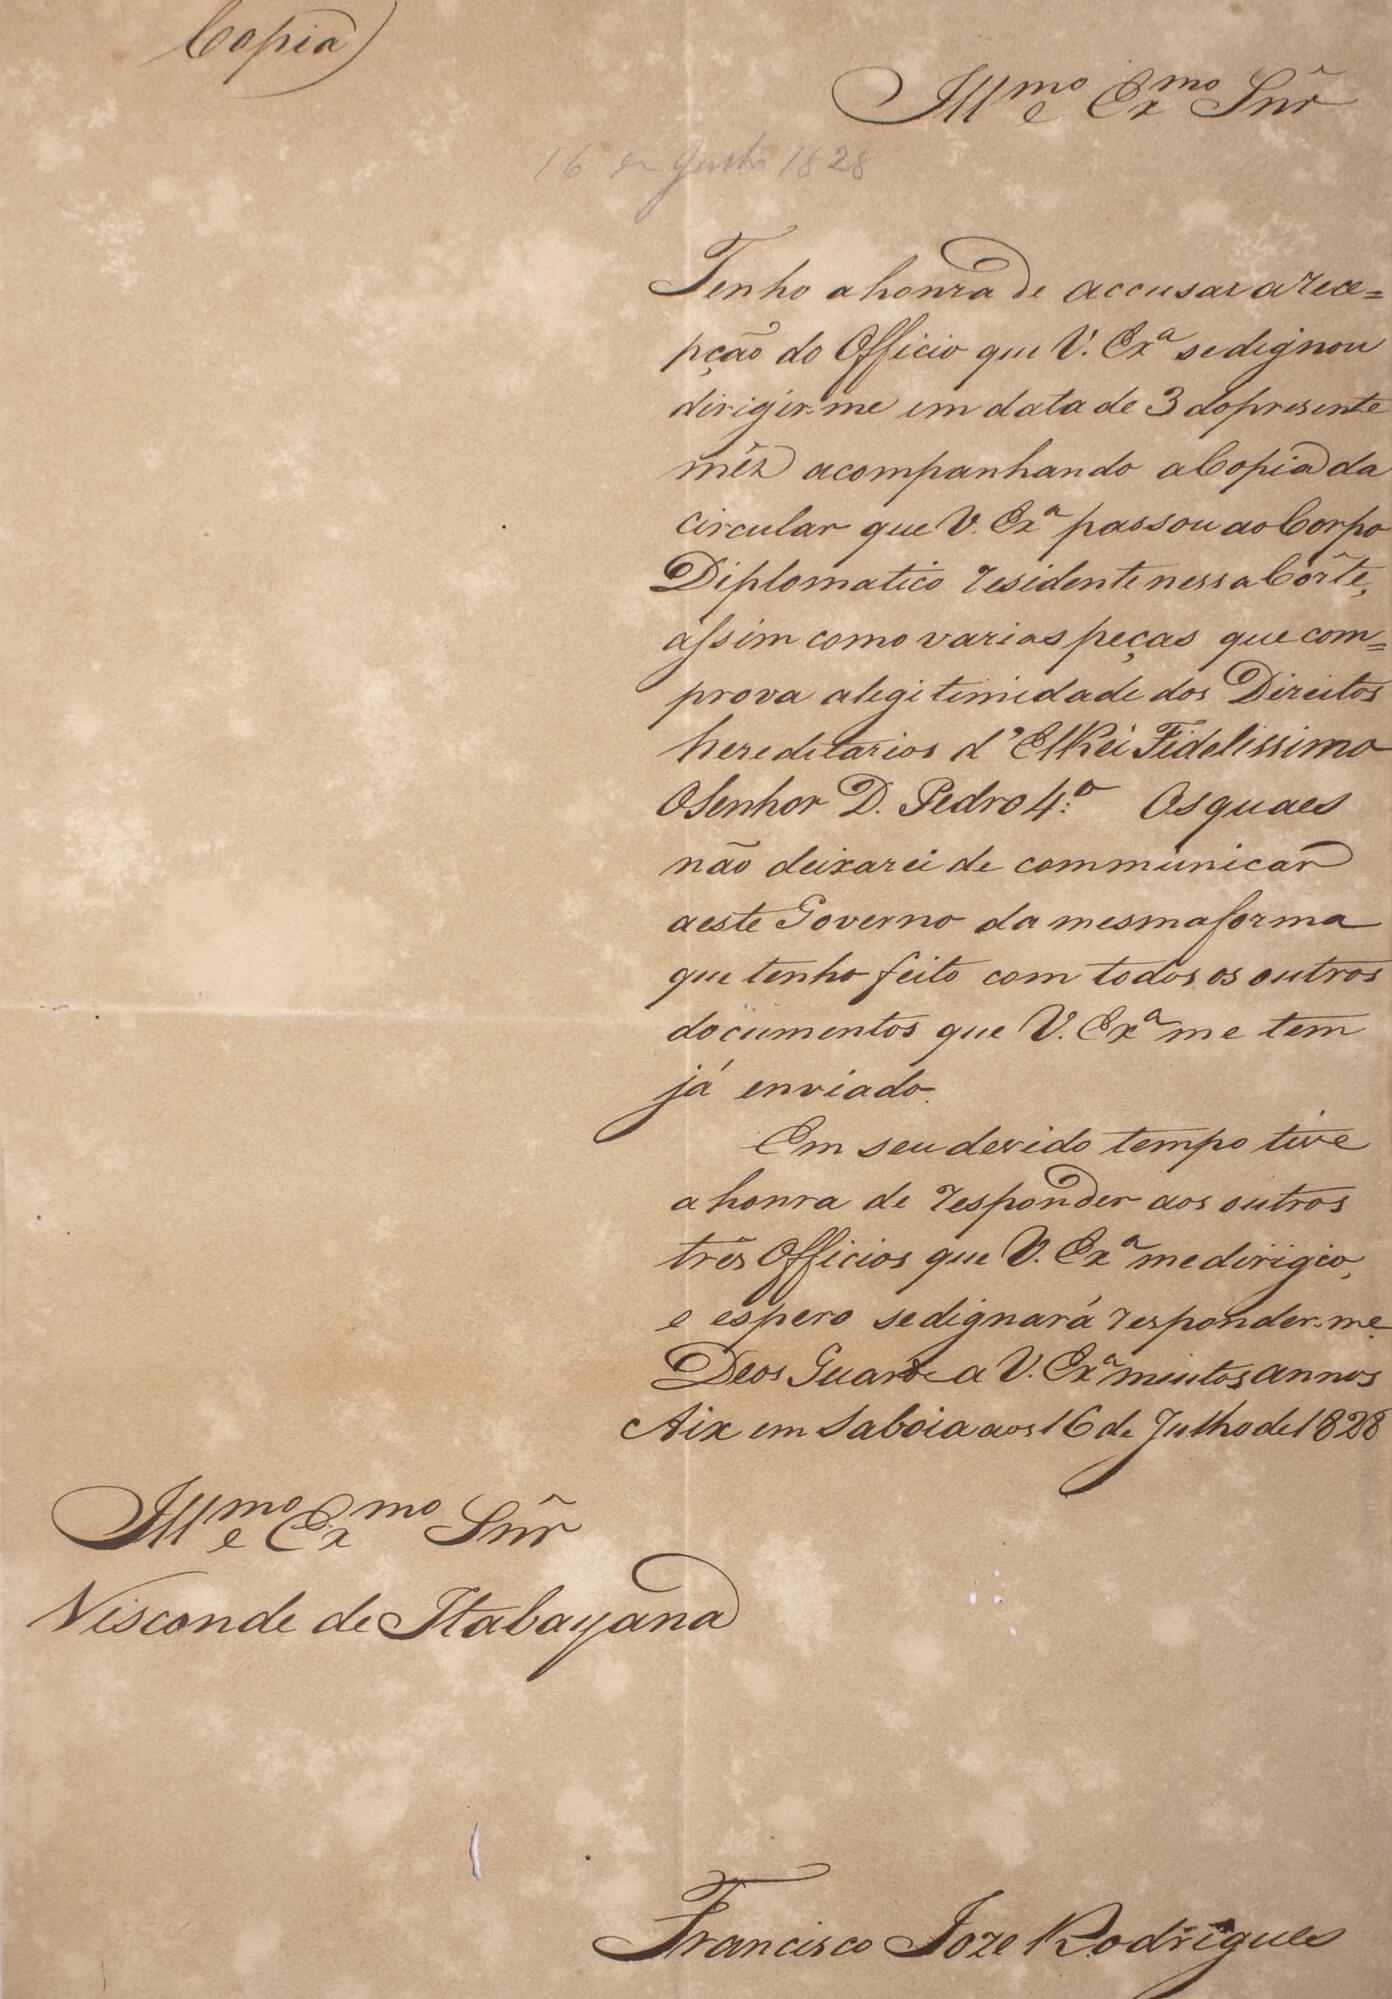 Copia
Illmo e Exmo Snr̃
16 de Julho 1828
Tenho a honra de accusar a rece=
pção do Officio que V. Exa se dignou
dirigir-me em data de 3 do presente
mêz acompanhando a Copia da
circular que V. Exa passou ao Corpo
Diplomatico residente nessa Côrte,
assim como varias peças que com=
prova a legitimidade dos Direitos
hereditarios d'ElRei Fidelissimo
O Senhor D. Pedro 4º. As quaes
não deixarei de communicar
a este Governo da mesma forma
que tenho feito com todos os outros
documentos que V. Exa me tem
já enviado.
Em seu devido tempo tive
a honra de responder aos outros
três Officios que V. Exa me dirigio,
e espero se dignará responder-me.
Deos Guarde a V. Exa muitos annos
Aix em Saboia aos 16 de Julho de 1828
Illmo e Exmo Snr̃
Visconde de Itabayana
Francisco Joze Rodrigues